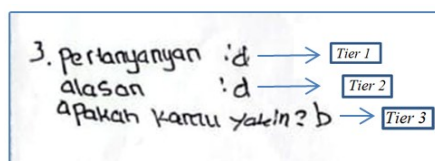 3. Pertanyanyan : d → Tier 1
alasan : d → Tier 2
Apakah kamu yakin? b → Tier 3